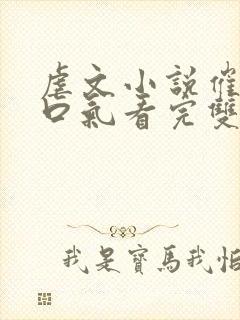 虐文小說催
口氣看完雙
我是寶馬我怕